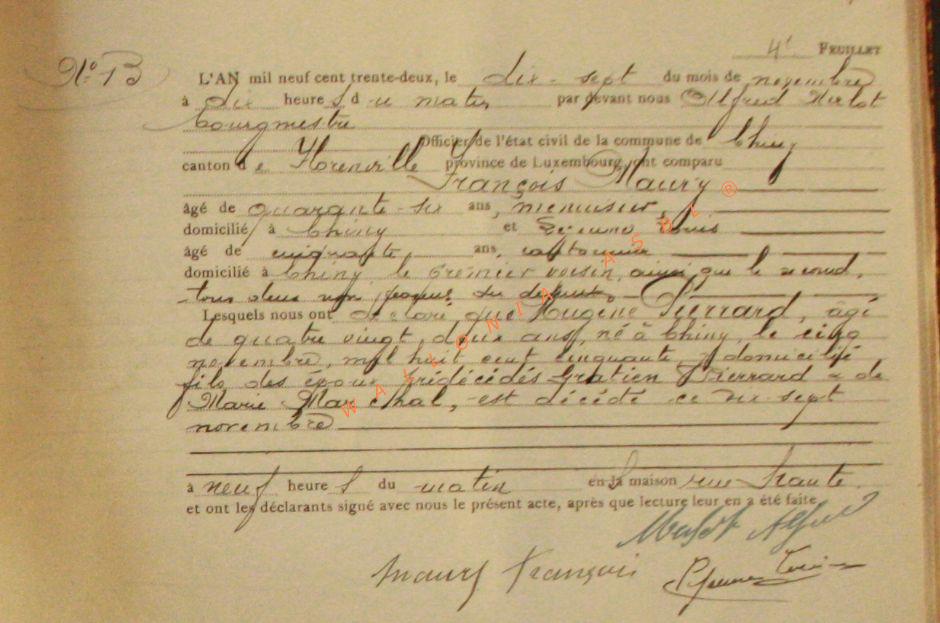 4e FEUILLET
No 13
L'AN mil neuf cent trente-deux, le dix-sept du mois de novembre
à dix heures du matin par devant nous Alfred
bourgmestre
Officier de l'état civil de la commune de Chiny
canton de Florenville province de Luxembourg, ont comparu
François Maury
âgé de quarante-six ans, menuisier,
domicilié à Chiny et Louis
âgé de cinquante ans, cantonnier
domicilié à Chiny le premier voisin, ainsi que le second,
tous deux non parents du défunt,
Lesquels nous ont déclaré que Eugène Pierrard, âgé
de quatre vingt deux ans, né à Chiny, le cinq
novembre, mil huit cent cinquante y domicilié
fils des époux prédécédés Gratien Pierrard & de
Marie Maréchal, est décédé ce dix-sept
novembre
à neuf heures du matin en sa maison rue Haute
et ont les déclarants signé avec nous le présent acte, après que lecture leur en a été faite.
Alfred
Maury François
WALLONIA ASBL ®